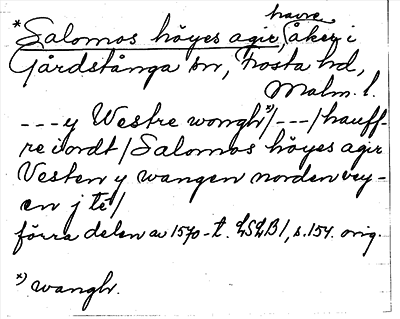 havre
*Salomos höyes agir, åker i
Gårdstånga sn, Frosta hd,
Malm. l.
---y Westre wongh*)/---/hauff-
re iordt/Salomos höyes agir
Vesten y wangen norden vey-
en j te/
förra delen av 1570-t. LSLB1, s.154. orig.
*) wanghr.